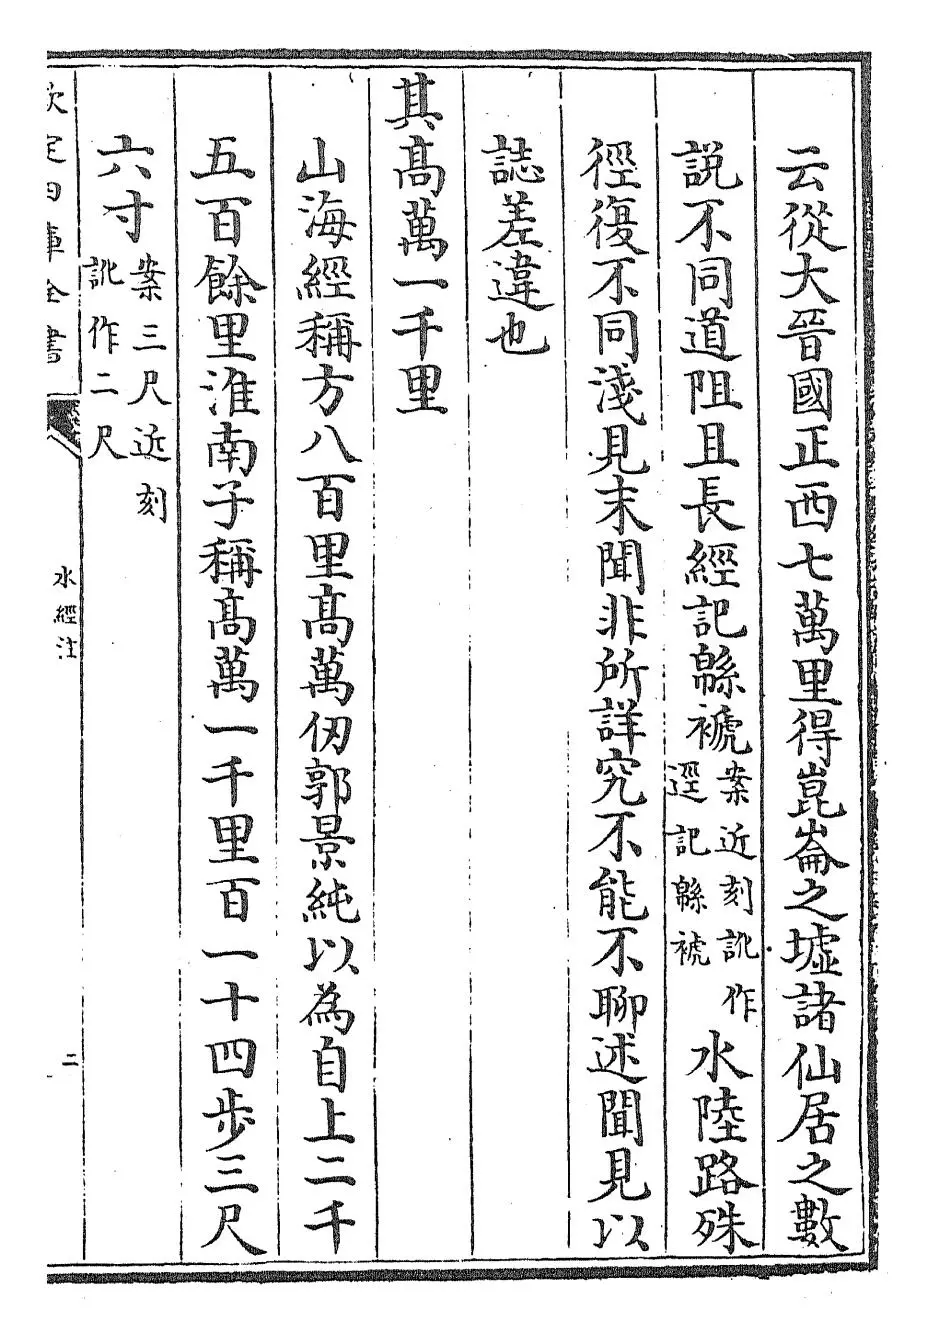 云從大晉國正西七萬里得崑崙之墟諸仙居之數
説不同道阻且長經記緜褫案近刻訛作逕記緜褫水陸路殊
徑復不同淺見末聞非所詳究不能不聊述聞見以
誌差違也
其髙萬一千里
山海經稱方八百里髙萬仞郭景純以為自上二千
五百餘里淮南子稱髙萬一千里百一十四步三尺
六寸案三尺近刻訛作二尺
欽定四庫全書 水經注 二